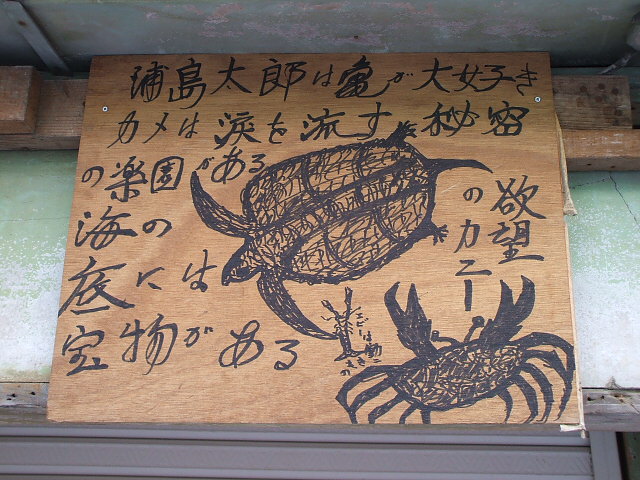 浦島太郎は亀が大好き
カメは涙を流す秘密
の楽園がある
海の
底には
宝物が ある
欲望
のカニー
エビは動